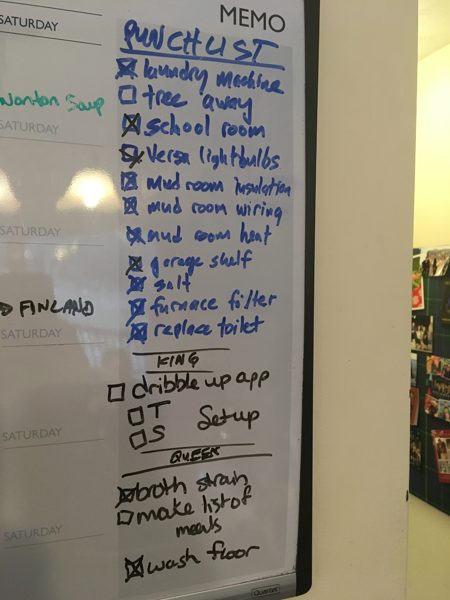 SATURDAY
MEMO
PUNCHLIST
laundry machine
tree away
Wonton Soup
SATURDAY
school room
Versa lightbulbs
mud room insulation
mud room wiring
SATURDAY
mud room heat
garage shelf
salt
FINLAND
furnace filter
SATURDAY
replace toilet
KING
dribble up app
T
Setup
S
SATURDAY
QUEEN
broth strain
make list of
meals
SATURDAY
wash floor
Quartet